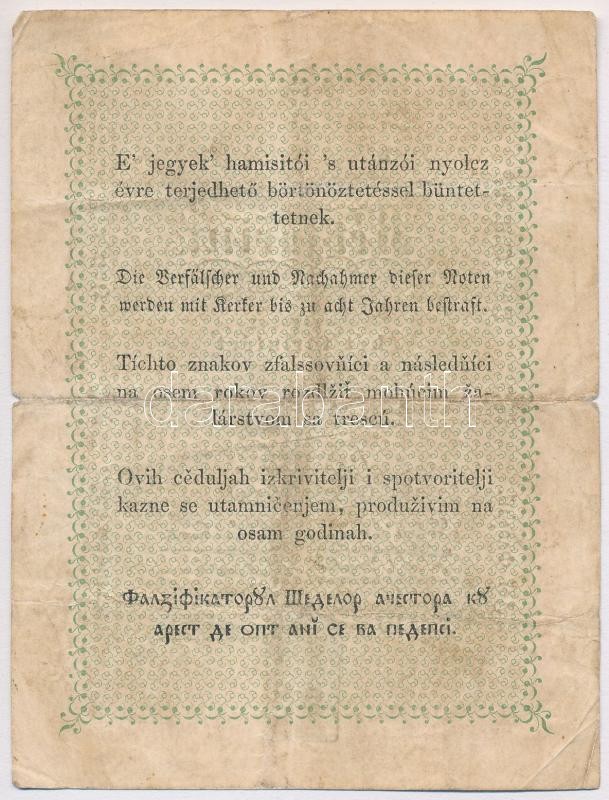 E' jegyek' hamisitói 's utánzói nyolcz
évre terjedhető börtönöztetéssel büntet-
tetnek.
Die Verfälscher und Nachahmer dieser Noten
werden mit Kerker bis zu acht Jahren bestraft.
Tíchto znakov zfalssovňíci a následňíci
na osem rokov rozdlžiť mohúcím ža-
lárstvom sa trescú.
darabanth
Ovih cěduljah izkrivitelji i spotvoritelji
kazne se utamničenjem, produživim na
osam godinah.
Фалзіфікаторꙋл Шеделор ачестора кꙋ
арест де опт анĭ се ва педепсі.